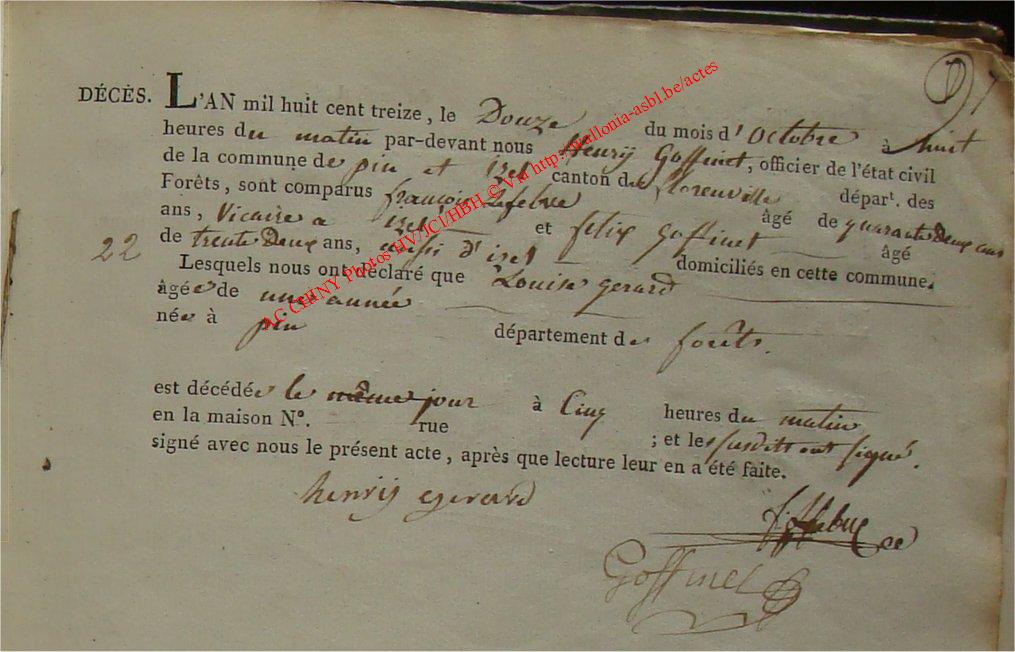 DÉCÈS. L'AN mil huit cent treize, le Douze du mois d'Octobre à huit
heures du matin par-devant nous henrÿ Goffinet, officier de l'état civil
de la commune de pin et izel canton de florenville départ. des
Forêts, sont comparus françois Lefebve âgé de quarante Deux ans
ans, Vicaire a izel et felix Goffinet âgé
22
de trente Deux ans, aussi d'izel domiciliés en cette commune.
Lesquels nous ont déclaré que Louise gerard
âgée de une année
née à pin département des forêts.
est décédée le même jour à Cinq heures du matin
en la maison N°. rue ; et les susdits ont signé.
signé avec nous le présent acte, après que lecture leur en a été faite.
henrÿ gerard
f: Lefebve
Goffinet
AC CHINY Photos HV/JCl/HBH © Via http://wallonia-asbl.be/actes